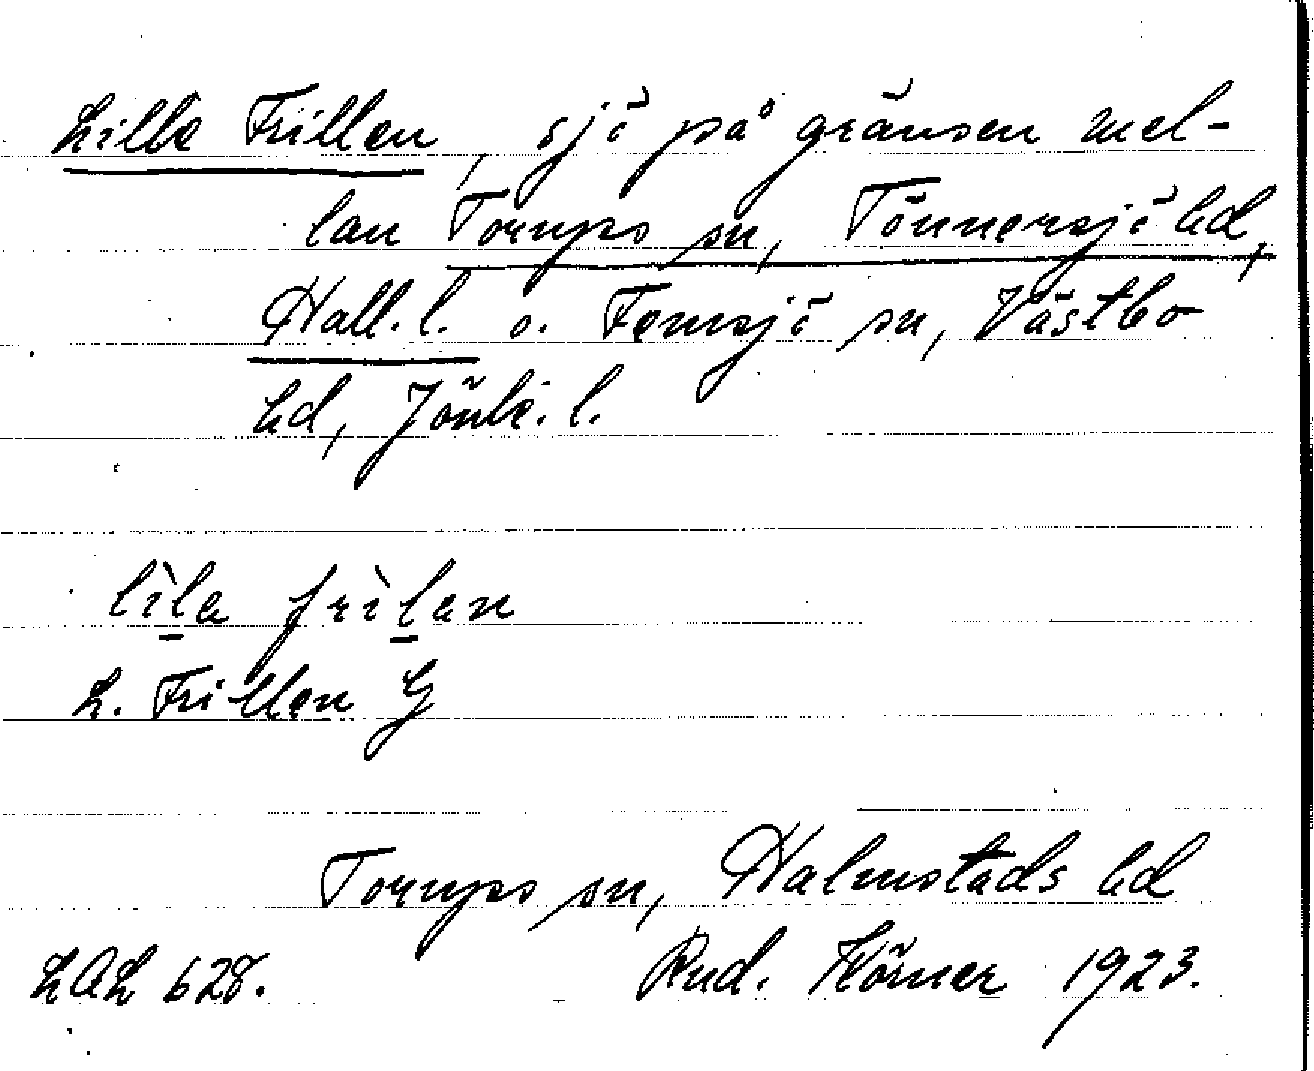 Lilla Frillen, sjö på gränsen mel-
lan Torups sn, Tönnersjö hd,
Hall. l. o. Femsjö sn, Västbo
hd, Jönk. l.
lìla frìlan
L. Frillen G
Torups sn, Halmstads hd
LAL 628. Rud. Körner 1923.